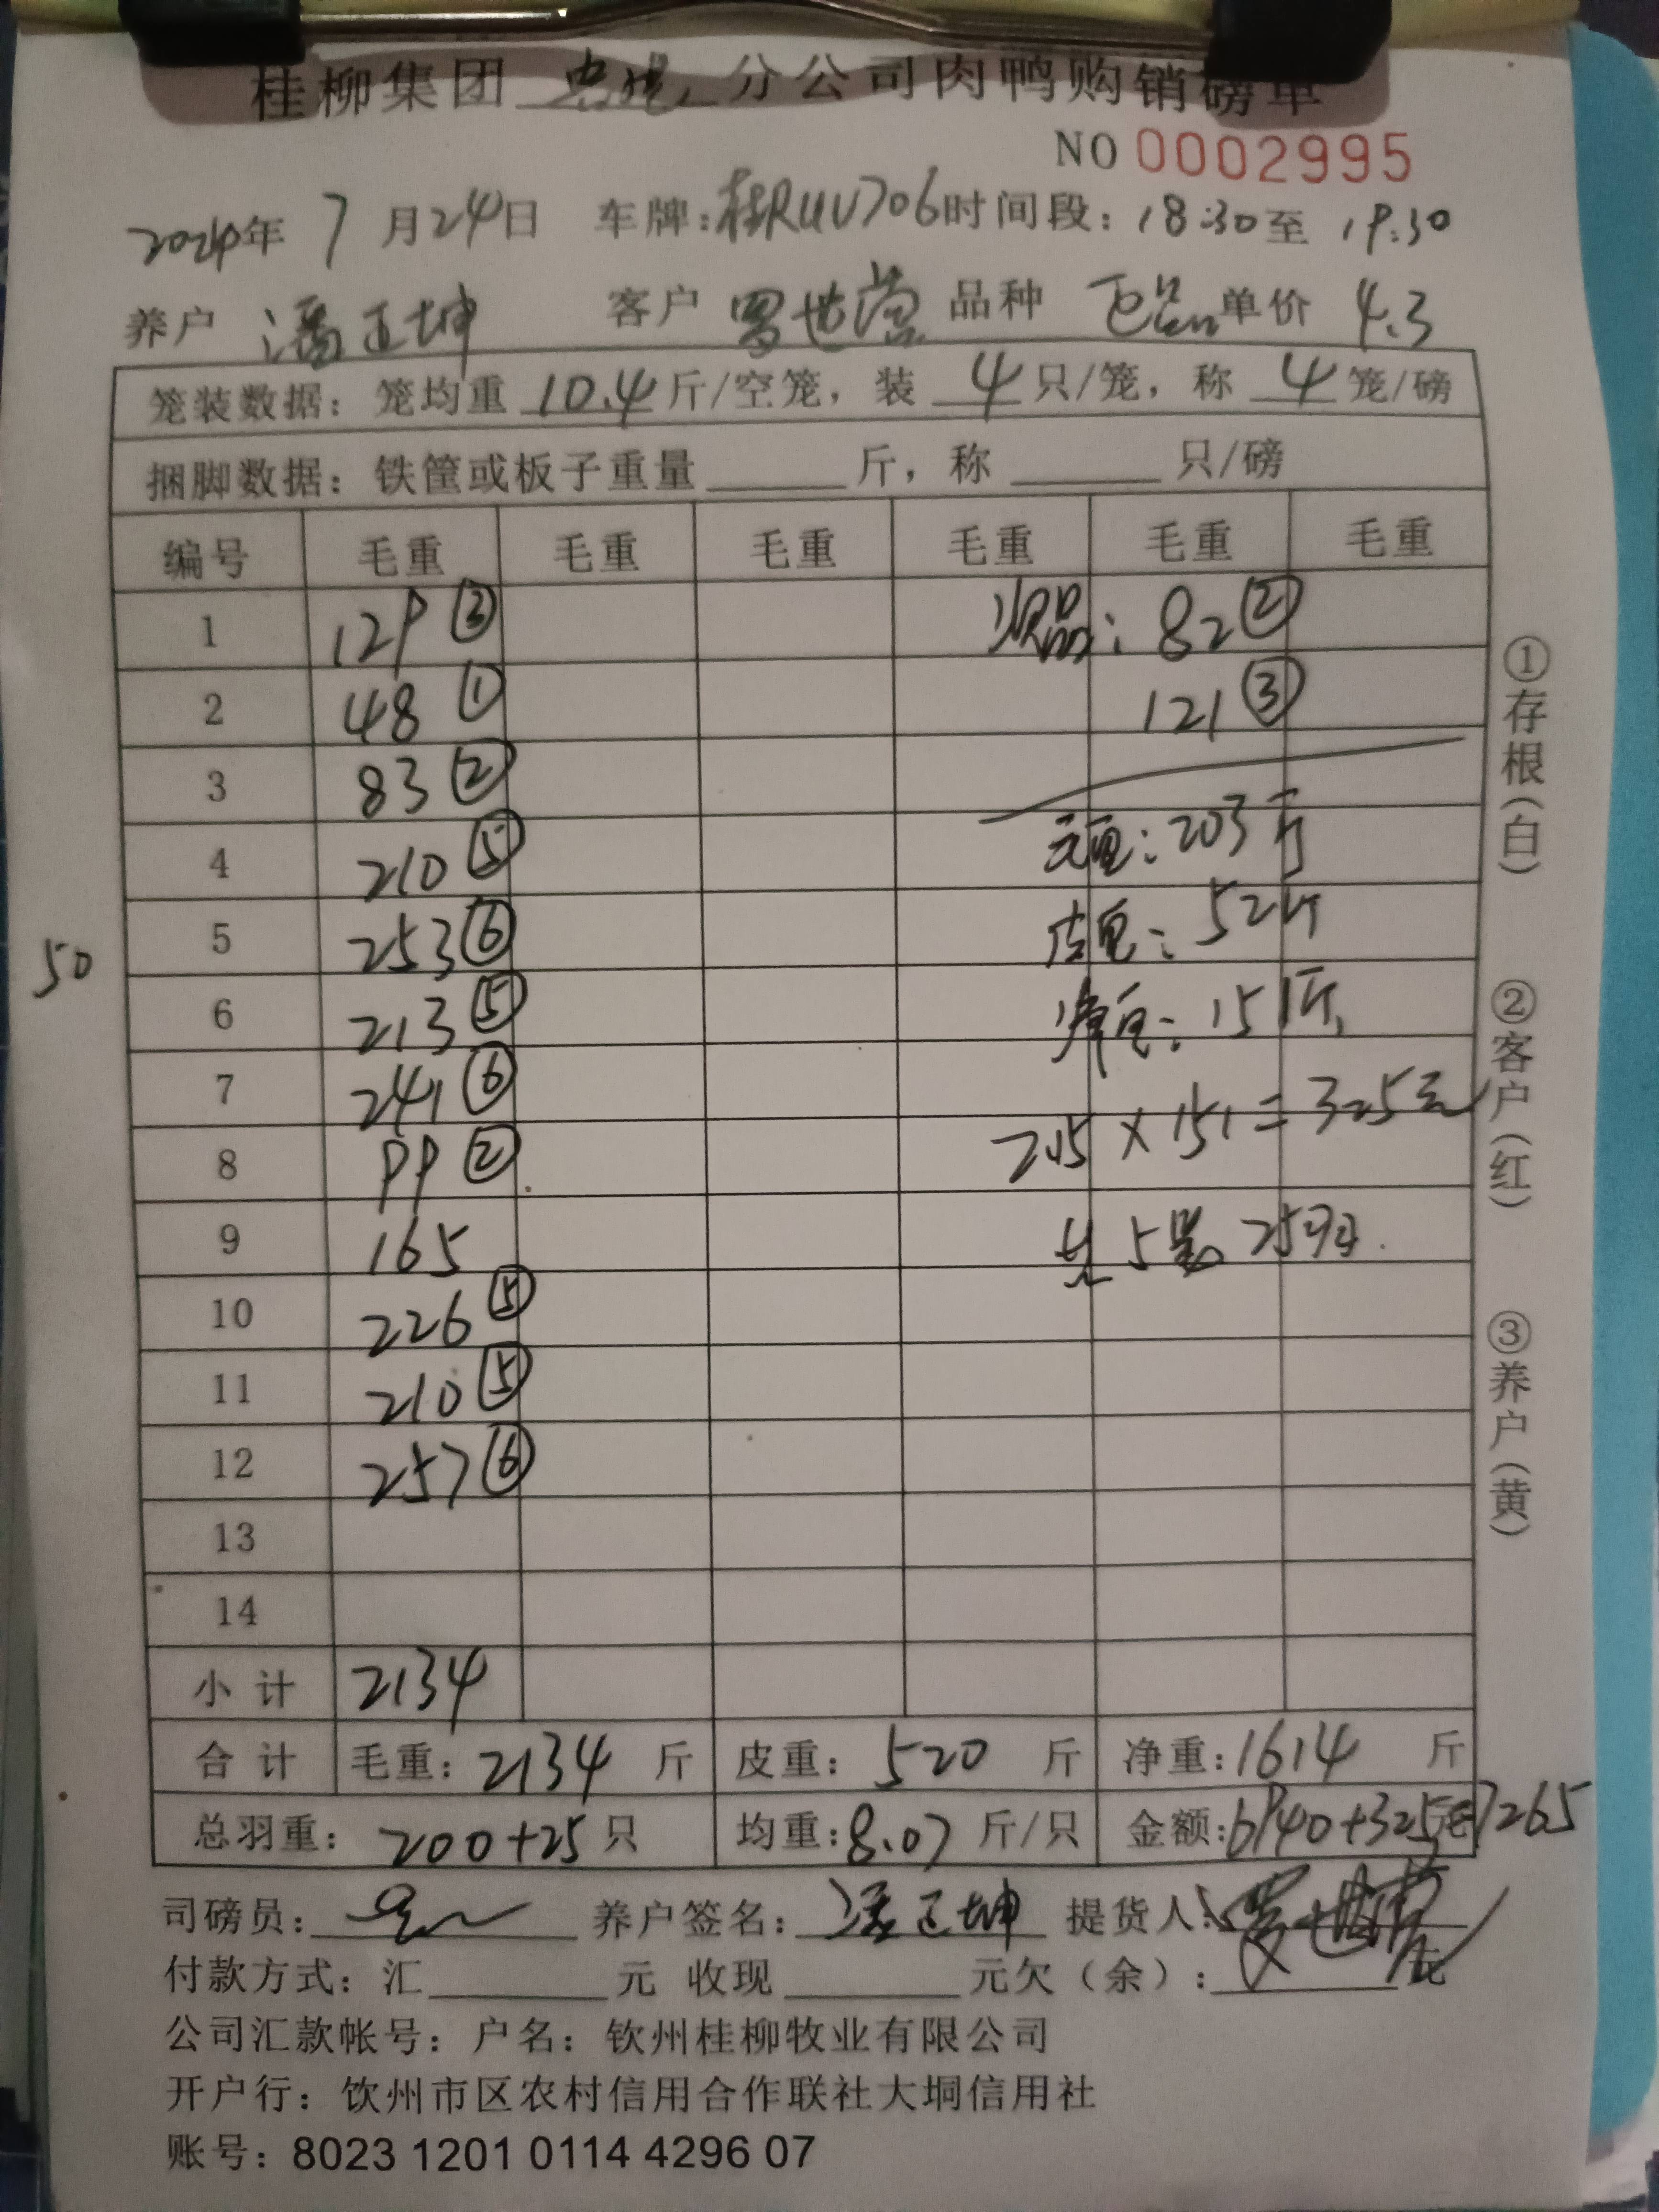 桂柳集团 分公司肉鸭购销磅单
NO 0002995
2024年 7 月24日 车牌:桂RUV706 时间段: 18:30至 19:30
养户 潘正坤 客户 罗世营 品种 单价 4.3
笼装数据: 笼均重 10.4 斤/空笼, 装 4 只/笼, 称 4 笼/磅
捆脚数据: 铁筐或板子重量 斤, 称 只/磅
编号 毛重 毛重 毛重 毛重 毛重 毛重
1 129 ③ 次品: 82 ②
2 48 ① 121 ③
3 83 ②
4 210 ⑤ 毛重: 203斤
5 253 ⑥ 皮重: 52斤
50
6 213 ⑤ 净重: 151斤
7 241 ⑥ 2.15 × 151 = 325元
8 99 ②
9 165 共 5笼 25羽.
10 226 ⑤
11 210 ⑤
12 257 ⑥
13
14
小计 2134
合计 毛重: 2134 斤 皮重: 520 斤 净重: 1614 斤
总羽重: 200+25 只 均重: 8.07 斤/只 金额: 6940+325元=7265
①存根(白)
②客户(红)
③养户(黄)
司磅员: 养户签名: 潘正坤 提货人: 罗世营
付款方式: 汇 元 收现 元欠(余): 元
公司汇款帐号: 户名: 钦州桂柳牧业有限公司
开户行: 钦州市区农村信用合作联社大垌信用社
账号: 8023 1201 0114 4296 07